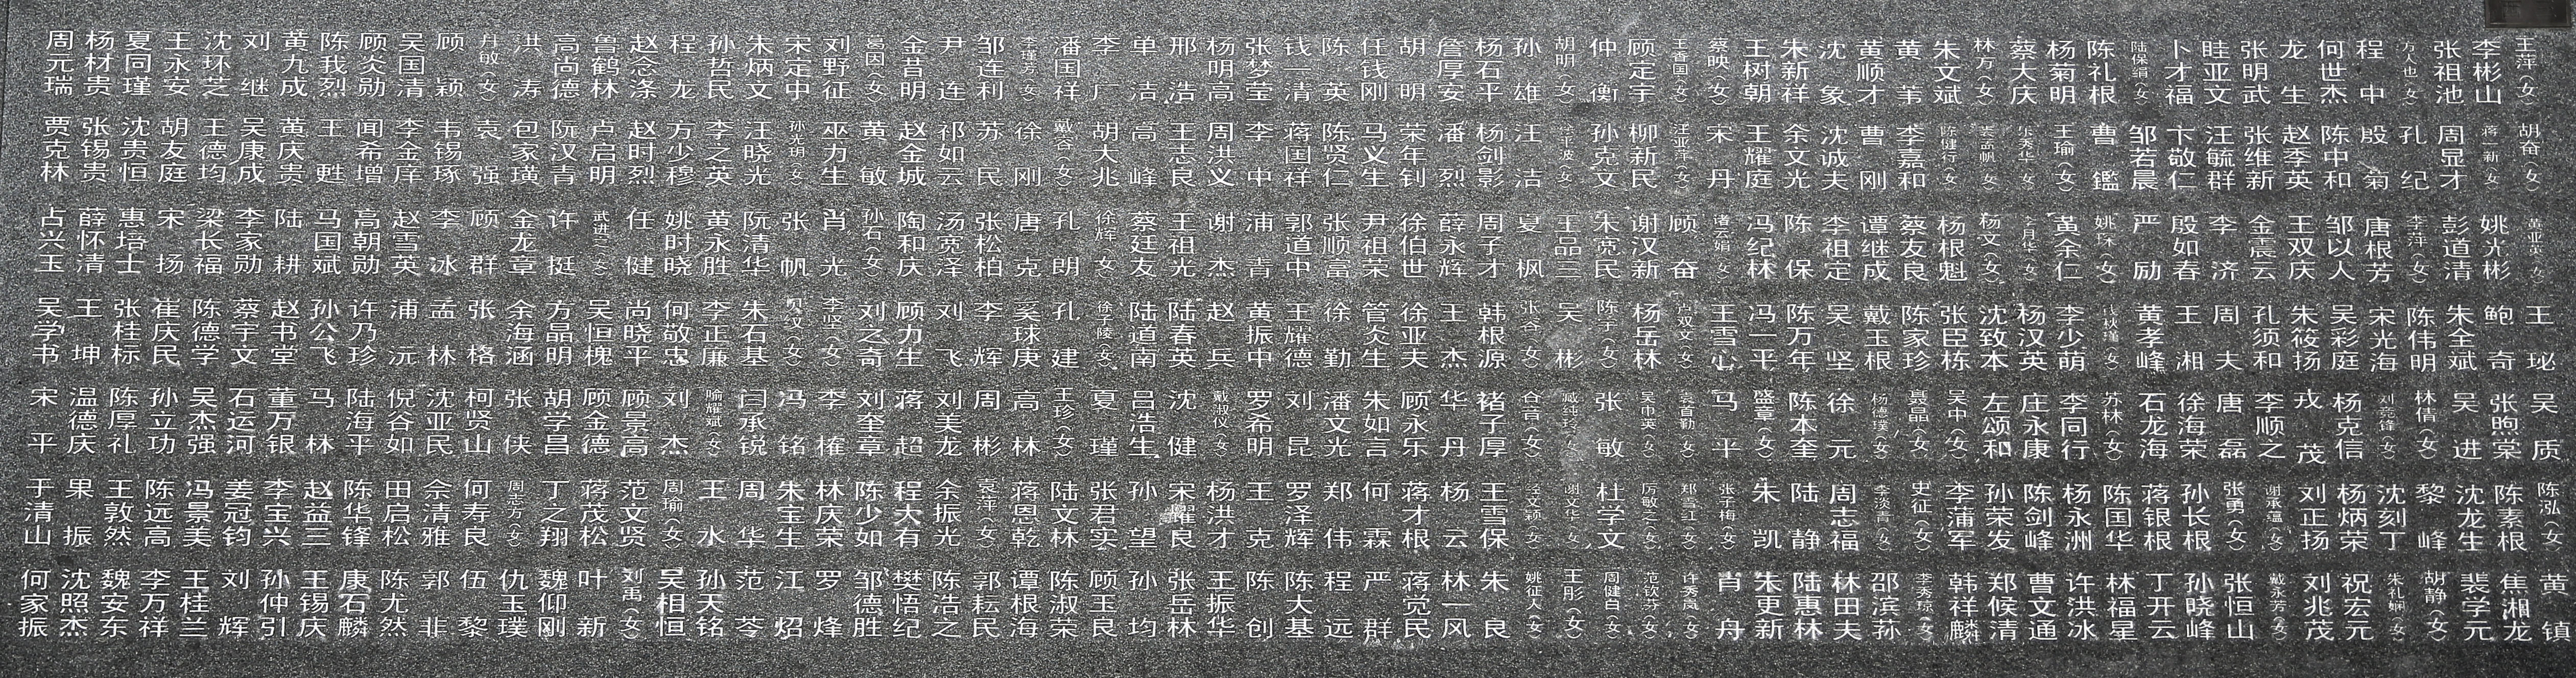 周元瑞 杨材贵 夏同瑾 王永安 沈环芝 刘继 黄九成 陈我烈 顾炎勋 吴国清 顾颖 丹敏（女） 洪涛 高尚德 鲁鹤林 赵念涤 程龙 孙哲民 朱炳文 宋定中 刘野征 葛因（女） 金昔明 尹连 邹连利 李瑾芳（女） 潘国祥 李广 单洁 邢浩 杨明高 张梦莹 钱一清 陈英 任钱刚 胡明 詹厚安 杨石平 孙雄 胡明（女） 仲衡 顾定宇 王香国（女） 蔡映（女） 王树朝 朱新祥 沈象 黄顺才 黄苇 朱文斌 林方（女） 蔡大庆 杨菊明 陈礼根 陆保绢（女） 卜才福 眭亚文 张明武 龙生 何世杰 程中 方人也（女） 张祖池 李彬山 王萍（女）
贾克林 张锡贵 沈贵恒 胡友庭 王德均 吴康成 黄庆贵 王甦 闻希增 李金庠 韦锡琢 袁强 包家璜 阮汉青 卢启明 赵时烈 方少穆 李之英 汪晓光 孙光玥（女） 巫力生 黄敏 赵金城 祁如云 苏民 徐刚 戴谷（女） 胡大兆 高峰 王志良 周洪义 李中 蒋国祥 陈贤仁 马义生 荣年钊 潘烈 杨剑影 汪洁 徐平波（女） 孙克文 柳新民 汪亚萍（女） 宋丹 王耀庭 余文光 沈诚夫 曹刚 李嘉和 陈健行（女） 裘孟帆（女） 乐秀华（女） 王瑜（女） 曹鑑 邹若晨 卞敬仁 汪毓群 张维新 赵季英 陈中和 殷菊 孔纪 周显才 蒋一新（女） 胡奋（女）
占兴玉 薛怀清 惠培士 宋扬 梁长福 李家勋 陆耕 马国斌 高朝勋 赵雪英 李冰 顾群 金龙章 许挺 武进之（女） 任健 姚时晓 黄永胜 阮清华 张帆 肖光 孙石（女） 陶和庆 汤宽泽 张松柏 唐克 孔朗 徐辉（女） 蔡廷友 王祖光 谢杰 浦青 郭道中 张顺富 尹祖荣 徐伯世 薛永辉 周子才 夏枫 王品三 朱宽民 谢汉新 顾奋 诸云娟（女） 冯纪林 陈保 李祖定 谭继成 蔡友良 杨根魁 杨文（女） 李月华（女） 黄余仁 姚琛（女） 严励 殷如春 李济 金震云 王双庆 邹以人 唐根芳 李萍（女） 彭道清 姚光彬 黄亚英（女）
吴学书 王坤 张桂标 崔庆民 陈德学 蔡宇文 赵书堂 孙公飞 许乃珍 浦沅 孟林 张格 余海涵 方晶明 吴恒槐 尚晓平 何敬忠 李正廉 朱石基 倪汉（女） 李坚（女） 刘之奇 顾力生 刘飞 李辉 奚球庚 孔建 徐子陵（女） 陆道南 陆春英 赵兵 黄振中 王耀德 徐勤 管炎生 徐亚夫 王杰 韩根源 张谷（女） 吴彬 陈于（女） 杨岳林 卢双文（女） 王雪心 冯一平 陈万年 吴坚 戴玉根 陈家珍 张臣栋 沈致本 杨汉英 李少萌 黄孝峰 王湘 周夫 孔须和 朱筱扬 吴彩庭 宋光海 陈伟明 朱全斌 鲍奇 王珌
宋平 温德庆 陈厚礼 孙立功 吴杰强 石运河 董万银 马林 陆海平 倪谷如 沈亚民 柯贤山 张侠 胡学昌 顾金德 顾景高 刘杰 喻耀斌（女） 闫承锐 冯铭 李榷 刘奎章 蒋超 刘美龙 周彬 高林 王珍（女） 夏瑾 吕浩生 沈健 戴叔仪（女） 罗希明 刘昆 潘文光 朱如言 顾永乐 华丹 诸子厚 谷音（女） 臧纯玲（女） 张敏 吴巾英（女） 袁首勤（女） 马平 盛章（女） 陈本奎 徐元 杨德璞（女） 聂晶（女） 吴中（女） 左颂和 庄永康 李同行 苏林（女） 石龙海 徐海荣 唐磊 李顺之 戎茂 杨克信 刘竞锋（女） 林倩（女） 吴进 张煦棠 吴质
于清山 果振 王敦然 陈远高 冯景美 姜冠钧 李宝兴 赵益三 陈华锋 田启松 佘清雅 何寿良 周志方（女） 丁之翔 蒋茂松 范文贤 周瑜（女） 王水 周华 朱宝生 林庆荣 陈少如 程大有 余振光 袁萍（女） 蒋恩乾 陆文林 张君实 孙望 宋耀良 杨洪才 王克 罗泽辉 郑伟 何霖 蒋才根 杨云 王雪保 谢友华（女） 杜学文 厉敏之（女） 郑雪红（女） 张子梅（女） 朱凯 陆静 周志福 李淡青（女） 史征（女） 李蒲军 孙荣发 陈剑峰 杨永洲 陈国华 蒋银根 孙长根 张勇（女） 谢承温（女） 刘正扬 杨炳荣 沈刻丁 黎峰 沈龙生 陈素根 陈泓（女）
何家振 沈照杰 魏安东 李万祥 王桂兰 刘辉 孙仲引 王锡庆 康石麟 陈尤然 郭非 伍黎 仇玉璞 魏仰刚 叶新 刘禹（女） 吴相恒 孙天铭 范苓 江炤 罗烽 邹德胜 樊悟纪 陈浩之 郭耘民 谭根海 陈淑荣 顾玉良 孙均 张岳林 王振华 陈创 陈大基 程远 严群 蒋觉民 林一风 朱良 姚征人（女） 王彤（女） 周健白（女） 范钦芬（女） 许秀岚（女） 肖舟 朱更新 陆惠林 林田夫 邵滨荪 李秀琼（女） 韩祥麟 郑候清 曹文通 许洪冰 林福星 丁开云 孙晓峰 张恒山 戴永芳（女） 刘兆茂 祝宏元 朱礼娴（女） 胡静（女） 裴学元 焦湘龙 黄镇